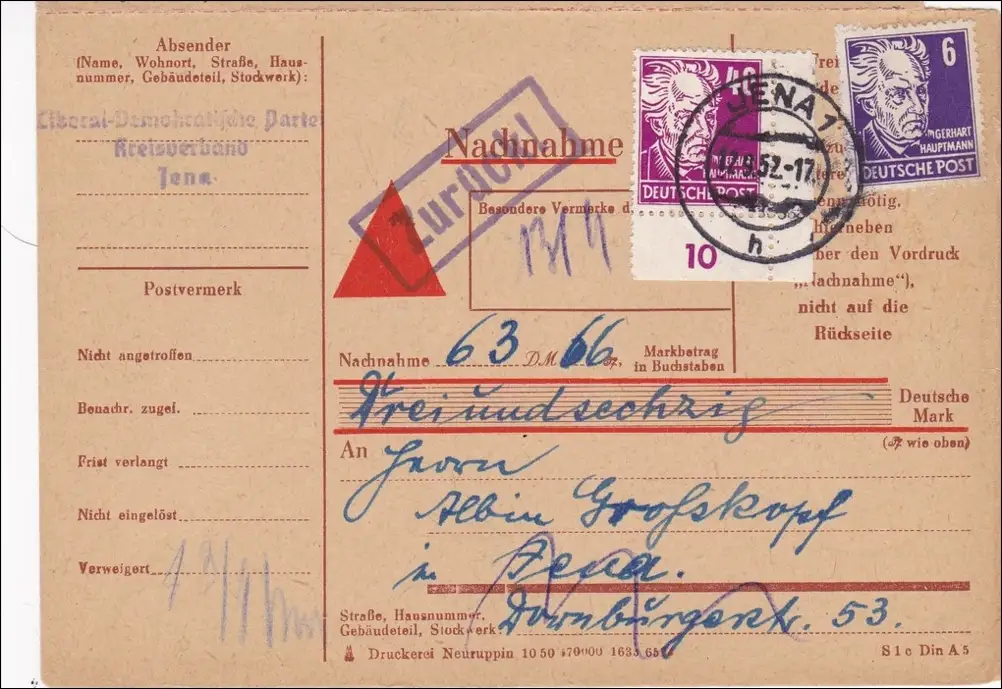 Absender
(Name, Wohnort, Straße, Haus-
nummer, Gebäudeteil, Stockwerk):
Liberal-Demokratische Partei
Kreisverband
Jena
Postvermerk
Nicht angetroffen
Benachr. zugef.
Frist verlangt
Nicht eingelöst
Verweigert
Nachnahme
Zurück!
Besondere Vermerke d
40
GERHART
HAUPTMANN
DEUTSCHE POST
10
JENA 1
52.-17
h
6
GERHART
HAUPTMANN
DEUTSCHE POST
nötig.
hierneben
über den Vordruck
„Nachnahme“),
nicht auf die
Rückseite
Nachnahme 63 DM 66 Pf, Markbetrag
in Buchstaben
Dreiundsechzig
Deutsche
Mark
(Pf wie oben)
An Herrn
Albin Großkopf
in Jena.
Straße, Hausnummer,
Gebäudeteil, Stockwerk: Dornburgerstr. 53.
Druckerei Neuruppin 10 50 470000 1635
S 1 c Din A 5